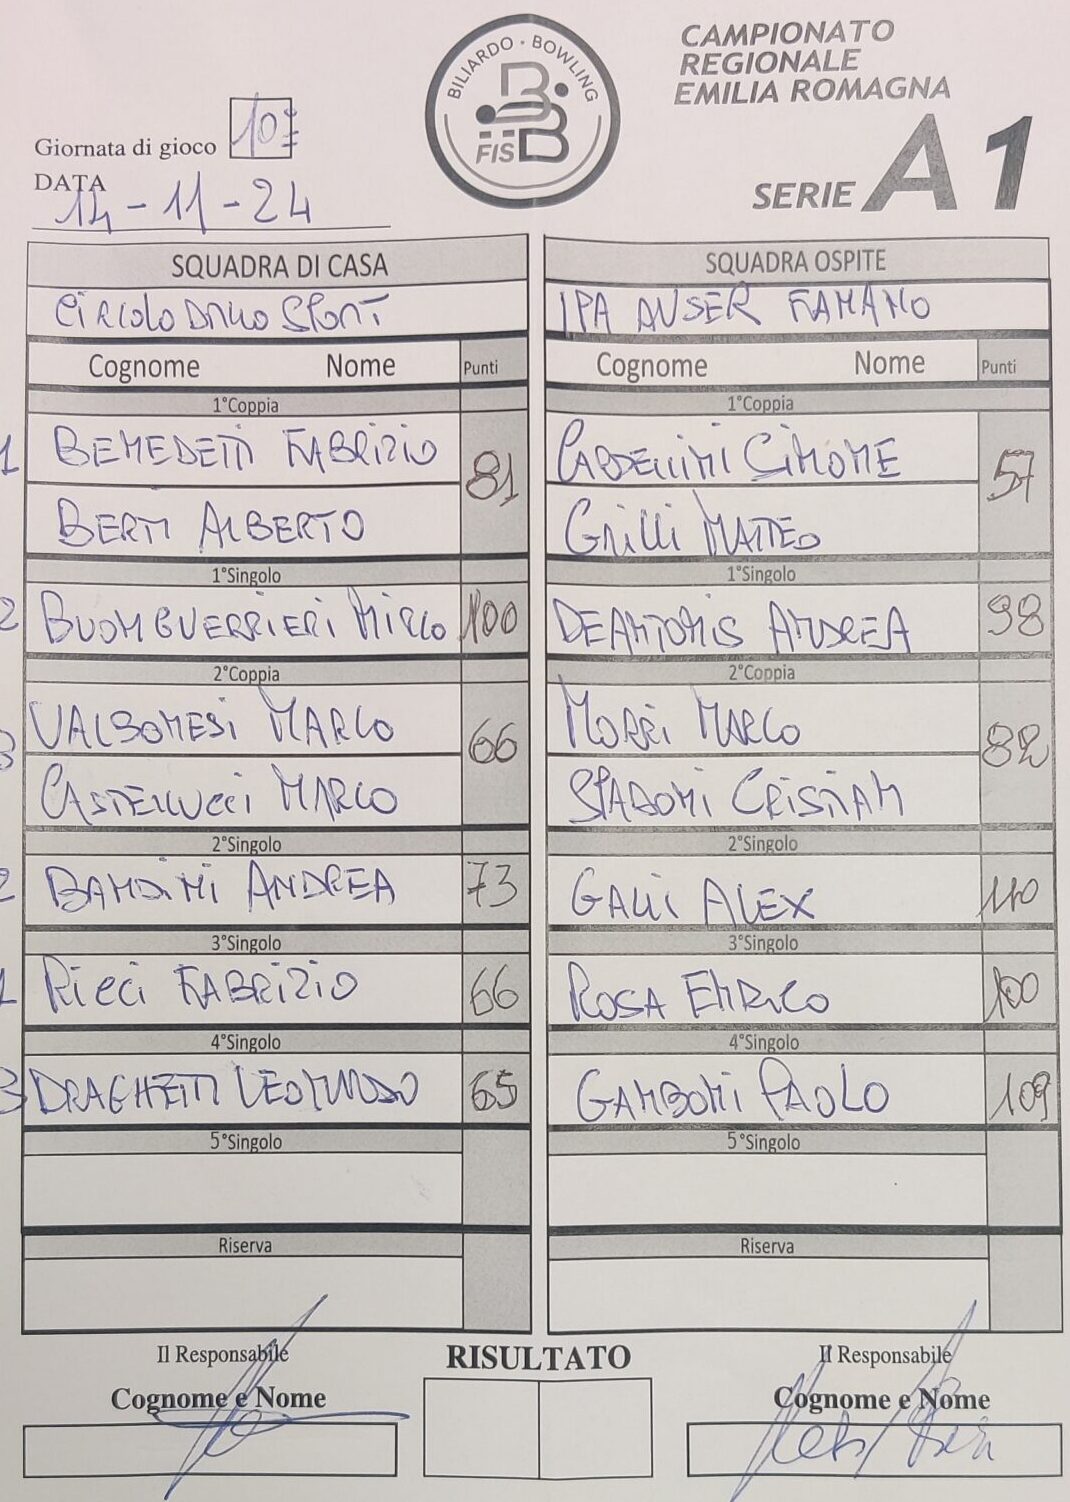 BILIARDO · BOWLING
FISBB
CAMPIONATO
REGIONALE
EMILIA ROMAGNA
SERIE A1
Giornata di gioco 10ª
DATA
14-11-24
SQUADRA DI CASA
CIRCOLO DELLO SPORT
Cognome Nome Punti
1°Coppia
1 BENEDETTI FABRIZIO 81
BERTI ALBERTO
1°Singolo
2 BUONGUERRIERI MIRCO 100
2°Coppia
3 VALBONESI MARCO 66
CASTELLUCCI MARCO
2°Singolo
2 BANDINI ANDREA 73
3°Singolo
1 RICCI FABRIZIO 66
4°Singolo
3 DRAGHETTI LEONARDO 65
5°Singolo
Riserva
Il Responsabile
Cognome e Nome
SQUADRA OSPITE
IPA AUSER RAMANO
Cognome Nome Punti
1°Coppia
CARDELLINI SIMONE 57
GRILLI MATTEO
1°Singolo
DEANTONIS ANDREA 98
2°Coppia
MORRI MARCO 82
SPADONI CRISTIAN
2°Singolo
GALLI ALEX 110
3°Singolo
ROSA ENRICO 100
4°Singolo
GAMBONI PAOLO 109
5°Singolo
Riserva
RISULTATO
Il Responsabile
Cognome e Nome